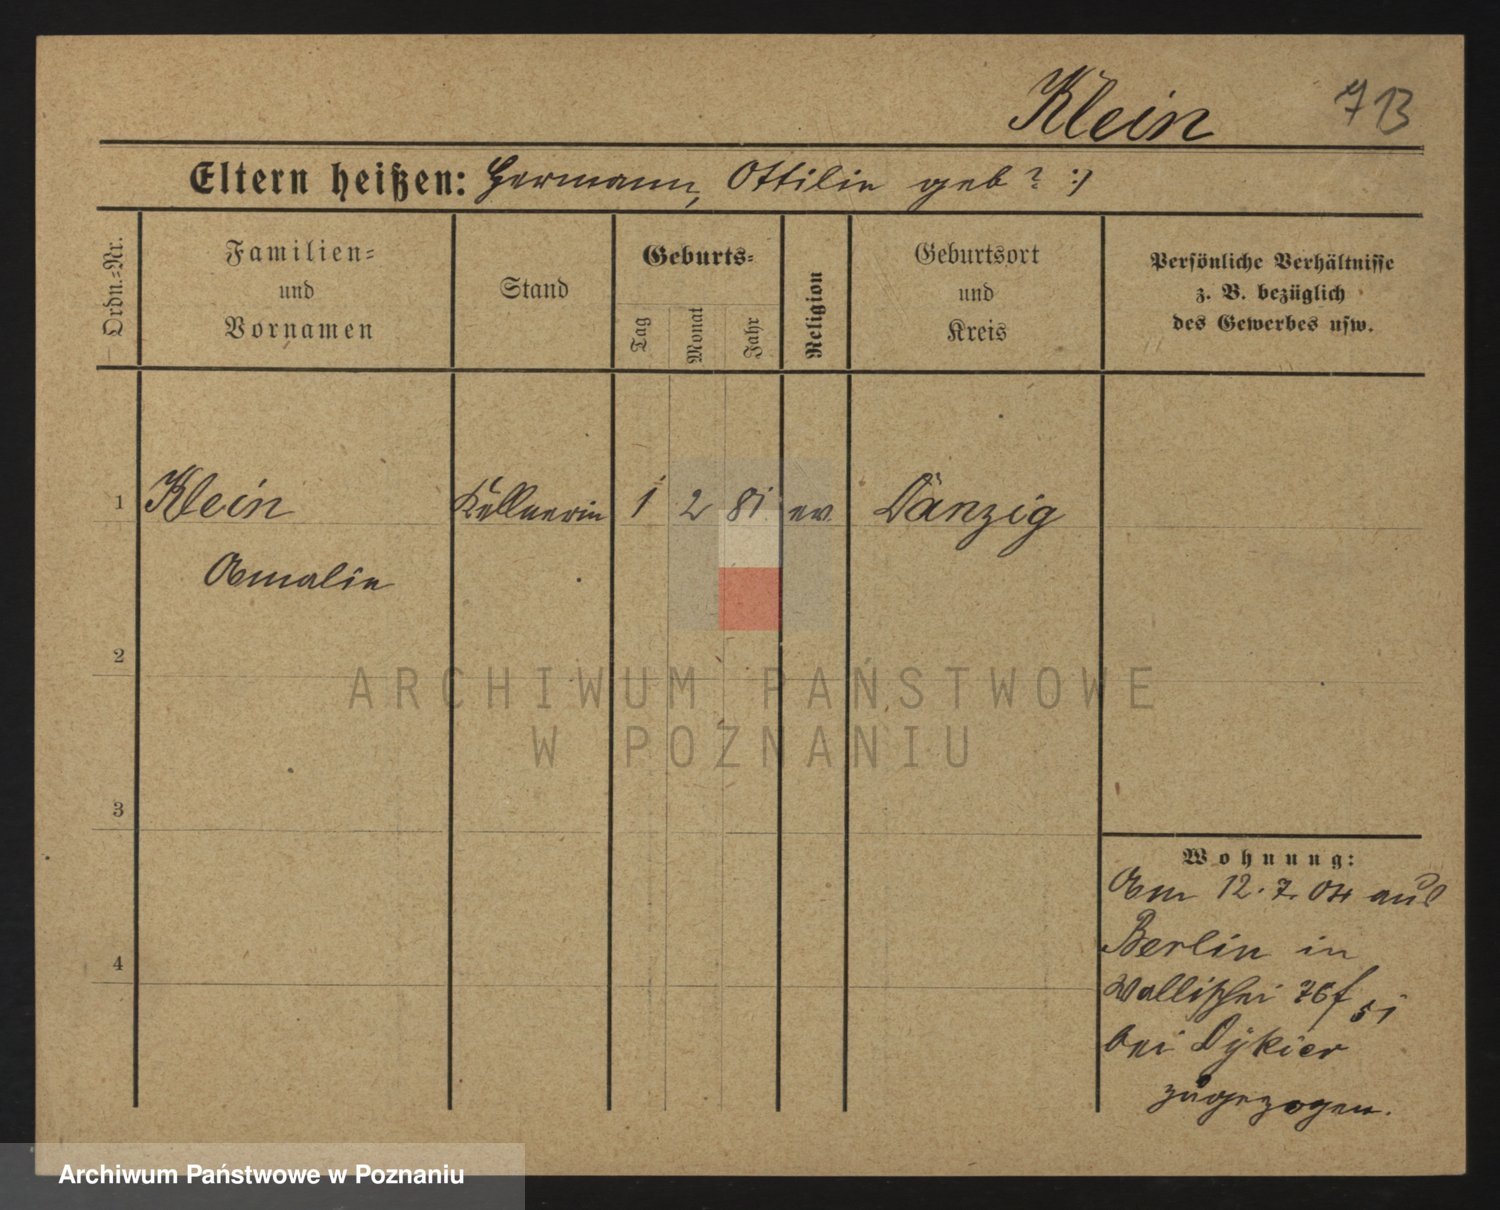 Klein 713
Eltern heißen: Hermann, Ottilie geb? :/
Ordn.=Nr.
Familien=
und
Vornamen
Stand
Geburts=
Tag
Monat
Jahr
Religion
Geburtsort
und
Kreis
Persönliche Verhältnisse
z. B. bezüglich
des Gewerbes usw.
1 Klein Kellnerin 1 2 81. ev. Danzig
Amalie
2
3
4
Wohnung:
Am 12. 7. 04 aus
Berlin in
Wallischei
bei Dykier
zugezogen.
ARCHIWUM PAŃSTWOWE
W POZNANIU
Archiwum Państwowe w Poznaniu